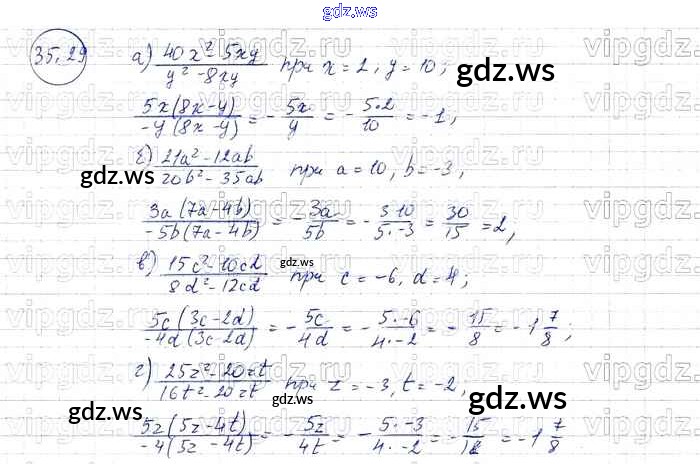 gdz.ws
35.29 а) (40x² - 5xy)/(y² - 8xy) при x = 2, y = 10;
gdz.ws
5x(8x-y)/(-y(8x-y)) = - 5x/y = - 5·2/10 = -1;
б) (21a² - 12ab)/(20b² - 35ab) при a = 10, b = -3,
gdz.ws
3a(7a-4b)/(-5b(7a-4b)) = - 3a/5b = - 3·10/5·-3 = 30/15 = 2;
в) (15c² - 10cd)/(8d² - 12cd) при c = -6, d = 4;
gdz.ws
5c(3c-2d)/(-4d(3c-2d)) = - 5c/4d = - 5·-6/4·-2 = - 15/8 = -1 7/8;
г) (25z² - 20zt)/(16t² - 20zt) при z = -3, t = -2,
gdz.ws
gdz.ws
gdz.ws
5z(5z-4t)/(-4(5z-4t)) = - 5z/4t = - 5·-3/4·-2 = - = -1 7/8
vipgdz.ru